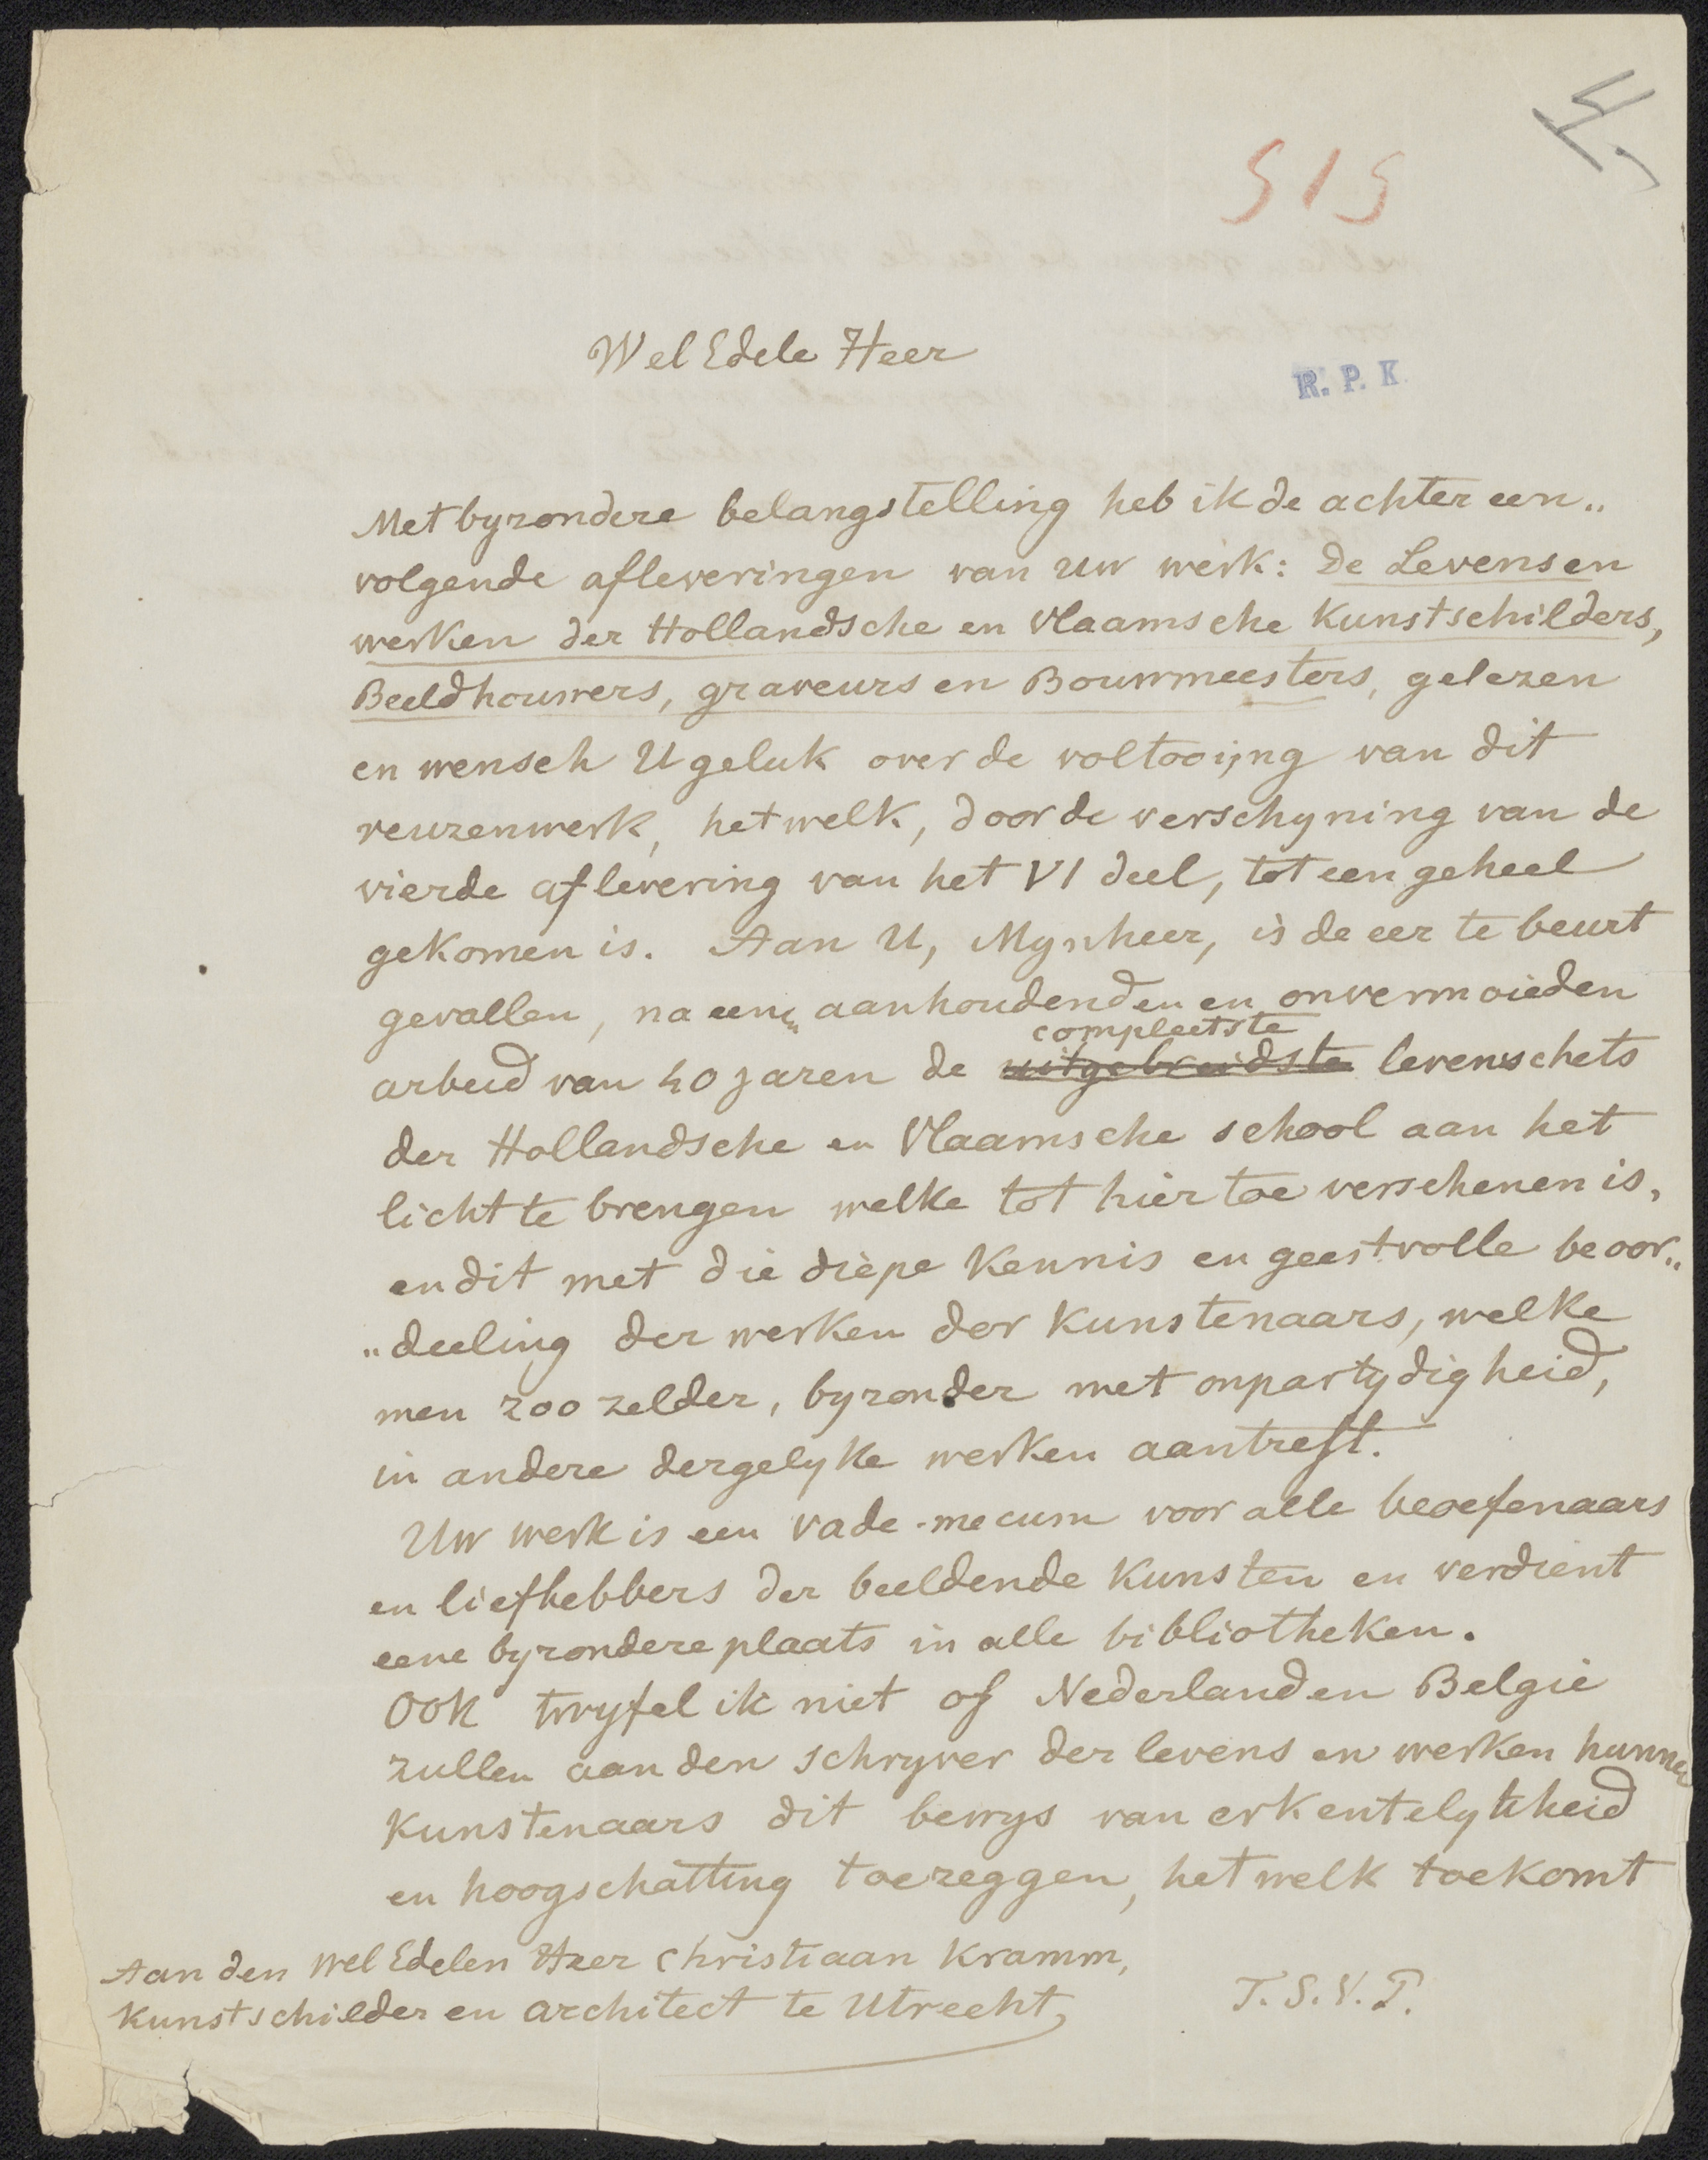 4,
515
Wel Edele Heer
R. P. K
Met byzondere belangstelling heb ik de achter een„
volgende afleveringen van uw werk: De Levens en
werken der Hollandsche en Vlaamsche Kunstschilders,
Beeldhouwers, graveurs en Bouwmeesters, gelezen
en wensch U geluk over de voltooijng van dit
reuzenwerk, hetwelk, door de verschyning van de
vierde aflevering van het VI deel, tot een geheel
gekomen is. Aan U, Mynheer, is de eer te beurt
gevallen, na eenen aanhoudenden en onvermoieden
compleetste
arbeid van 40 jaren de uitgebreidste levenschets
der Hollandsche en Vlaamsche school aan het
licht te brengen welke tot hier toe verschenen is,
en dit met die diepe Kennis en geestvolle beoor„
„deeling der werken der Kunstenaars, welke
men zoo zelder, byzonder met onpartydigheid,
in andere dergelyke werken aantreft.
Uw werk is een vade-mecum voor alle beoefenaars
en liefhebbers der beeldende Kunsten en verdient
eene byzondere plaats in alle bibliotheken.
Ook twyfel ik niet of Nederland en Belgie
zullen aan den schryver der levens en werken hunner
Kunstenaars dit bewys van erkentelykheid
en hoogschatting toezeggen, hetwelk toekomt
Aan den Wel Edelen Heer Christiaan Kramm,
Kunstschilder en architect te Utrecht,
T.S.V.P.